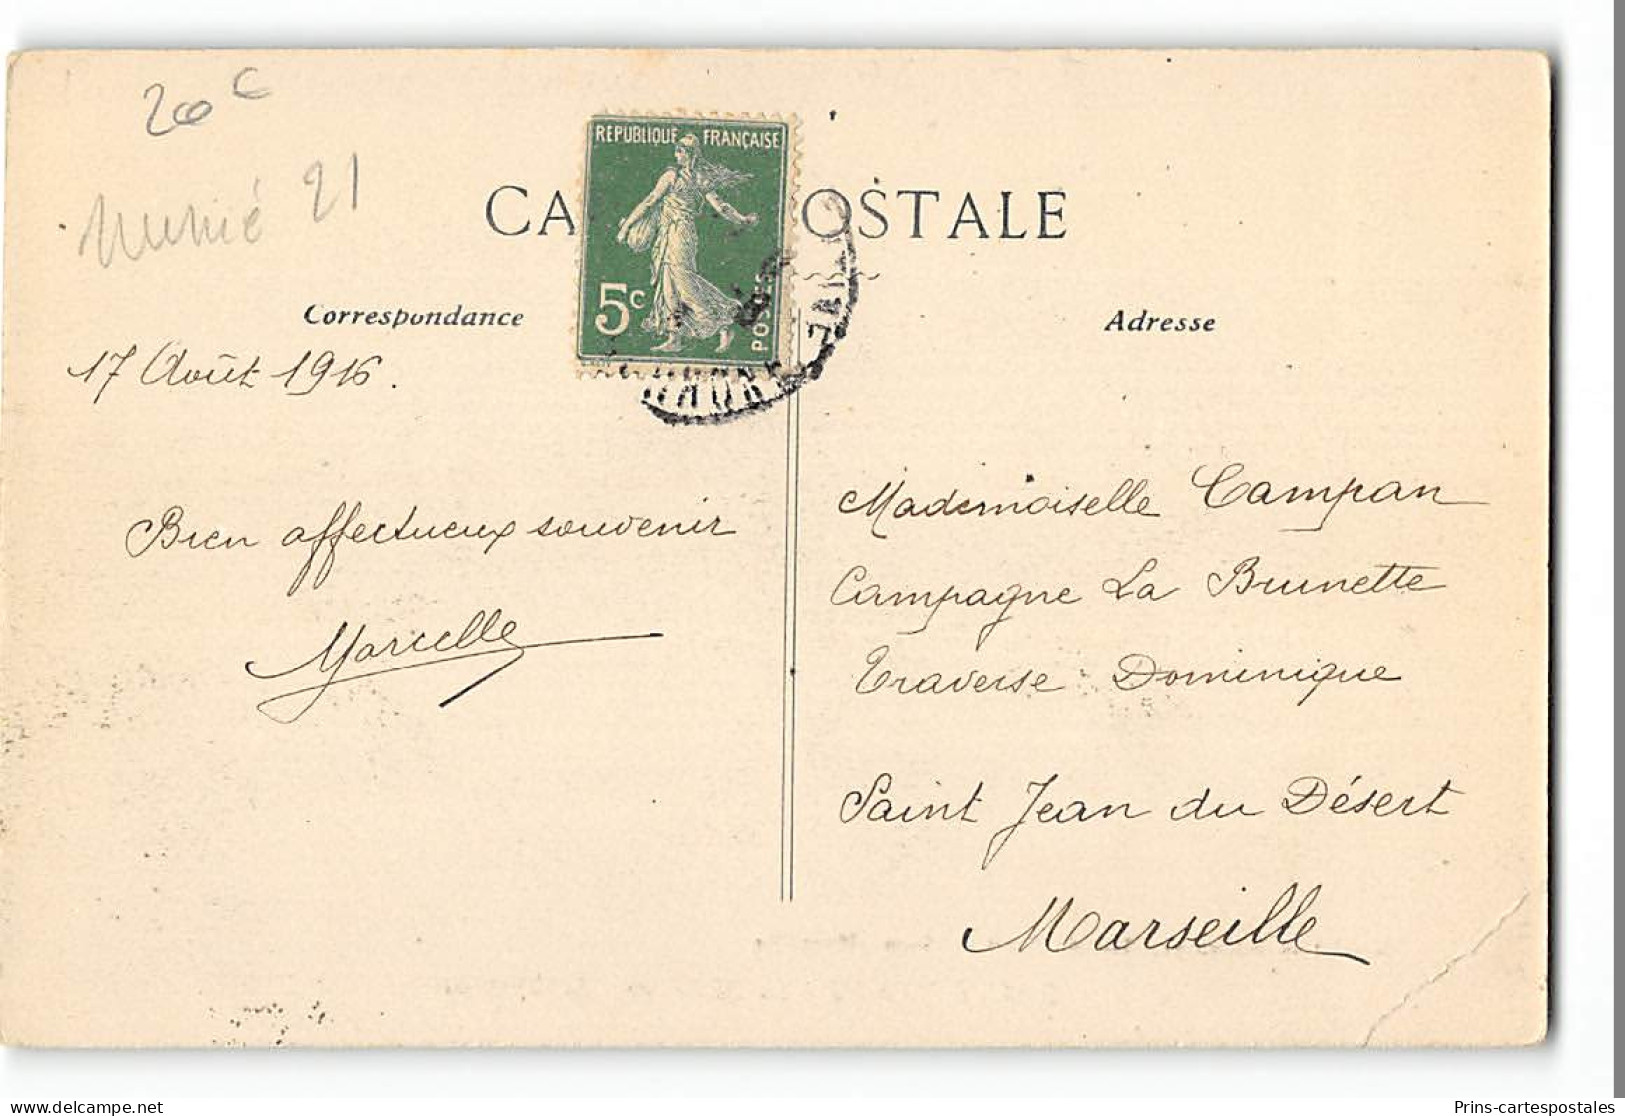 20 c
21
RÉPUBLIQUE FRANÇAISE
5c
POSTES
CA OSTALE
Correspondance
Adresse
17 Août 1916.
Bien affectueux souvenir
Marcelle
Mademoiselle Campan
Campagne La Brunette
Traverse Dominique
Saint Jean du Désert
Marseille
www.delcampe.net
Prins-cartespostales